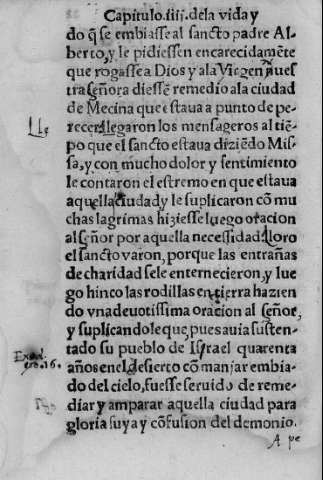 Capitulo.iiij.dela vida y
do q̃ se embiasse al sancto padre Al
berto,y le pidiessen encarecidamẽte
que rogasse a Dios y ala Virgen nues
tra señora diesse remedio ala ciudad
de Mecina que estaua a punto de pe-
recer. llegaron los mensageros al tiẽ-
po que el sancto estaua diziẽdo Mis-
sa,y con mucho dolor y sentimiento
le contaron el estremo en que estaua
aquella ciudad y le suplicaron cõ mu
chas lagrimas hiziesse luego oracion
al señor por aquella necessidad. Lloro
el sancto varon, porque las entrañas
de charidad se le enternecieron, y lue
go hinco las rodillas en tierra hazien
do vna deuotissima oracion al señor,
y suplicandole que, pues auia susten-
tado su pueblo de Israel quarenta
años en el desierto cõ manjar embia-
do del cielo, fuesse seruido de reme-
diar y amparar aquella ciudad para
gloria suya y cõfusion del demonio.
A pe
Exod.
16.